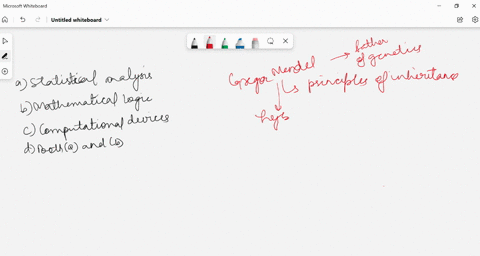 Microsoft Whiteboard
Untitled whiteboard
a) Statistical analysis
b) Mathematical logic
c) Computational devices
d) Both (a) and (b)
Gregor Mendel → father
of genetics
↳ principles of inheritance